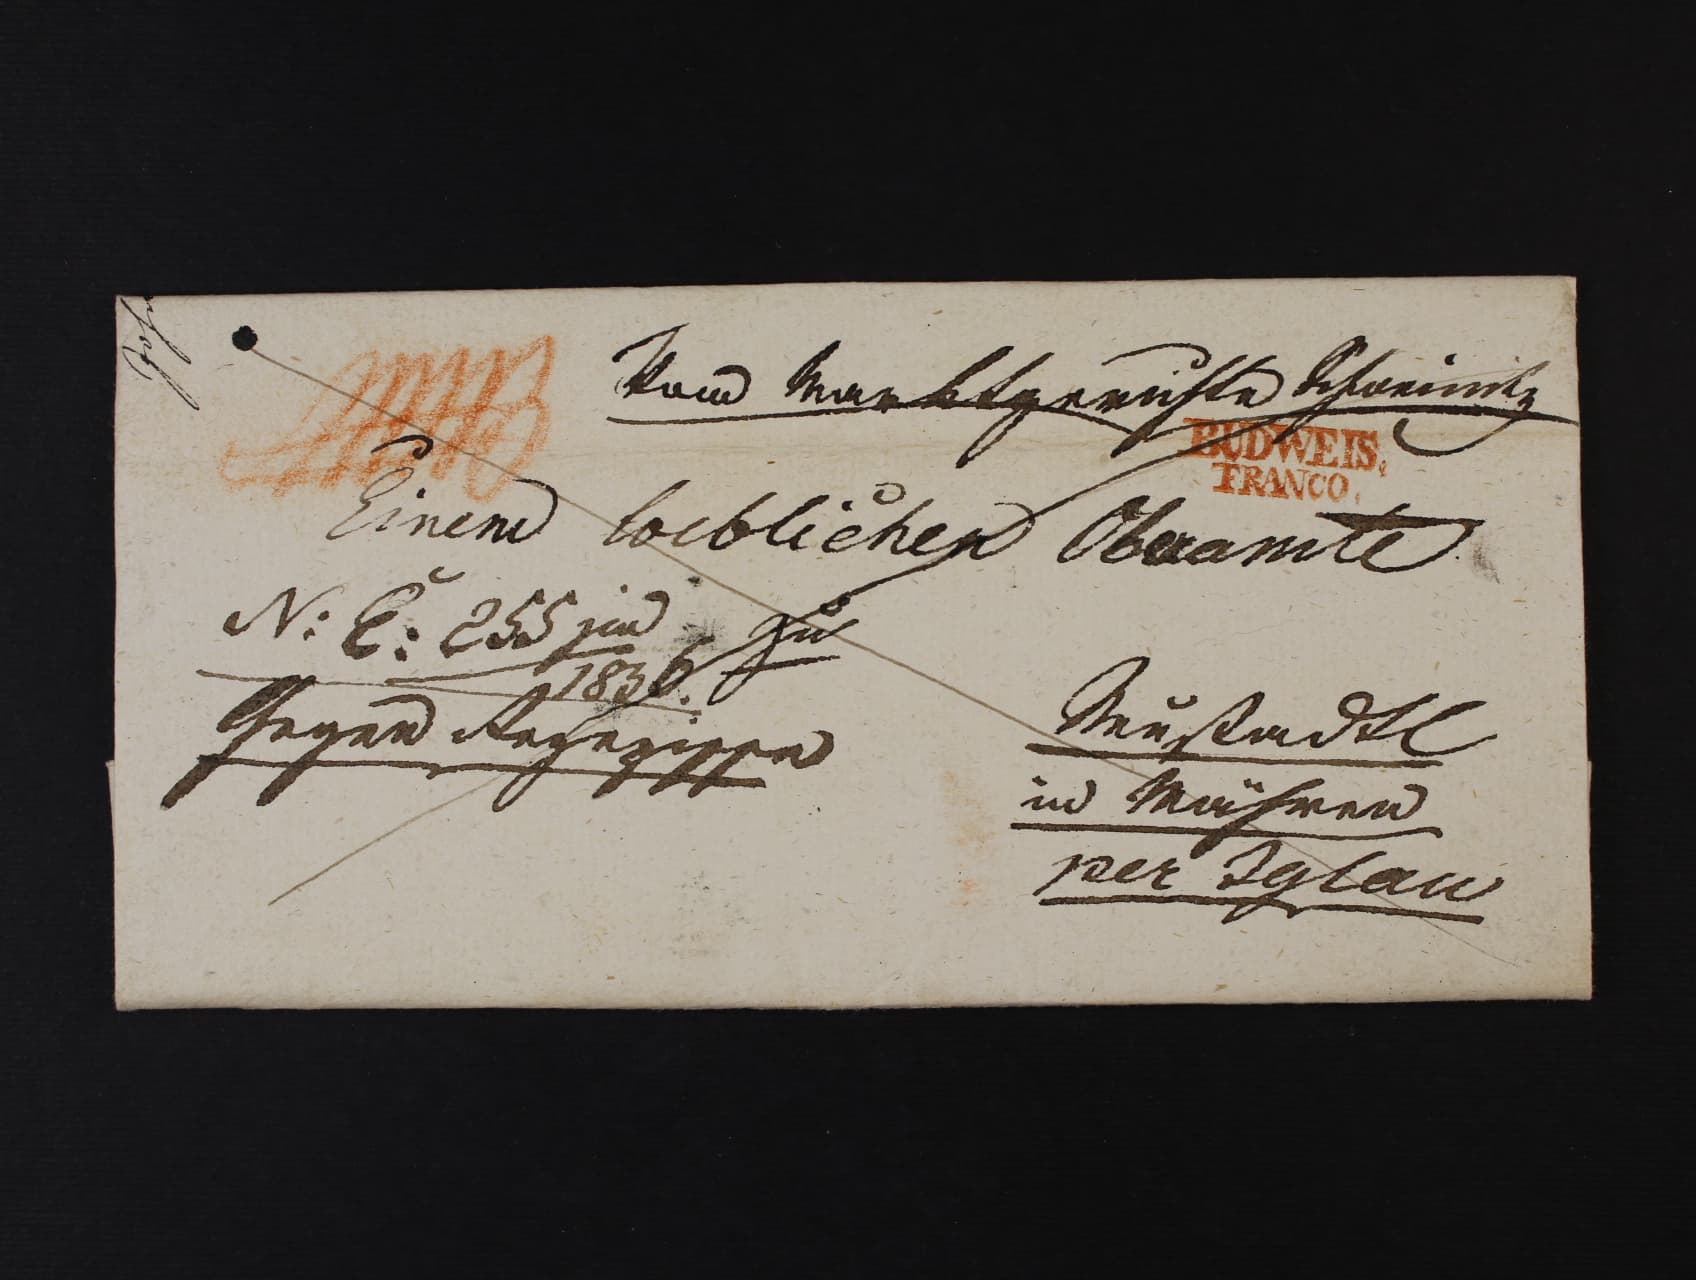 Vom Marktgerichte Schweinitz
BUDWEIS.
FRANCO.
Einem loeblichen Oberamte
N: E: 255 jud
1836.
zu
Gegen Rezepisse
Neustadtl
in Mähren
per Iglau